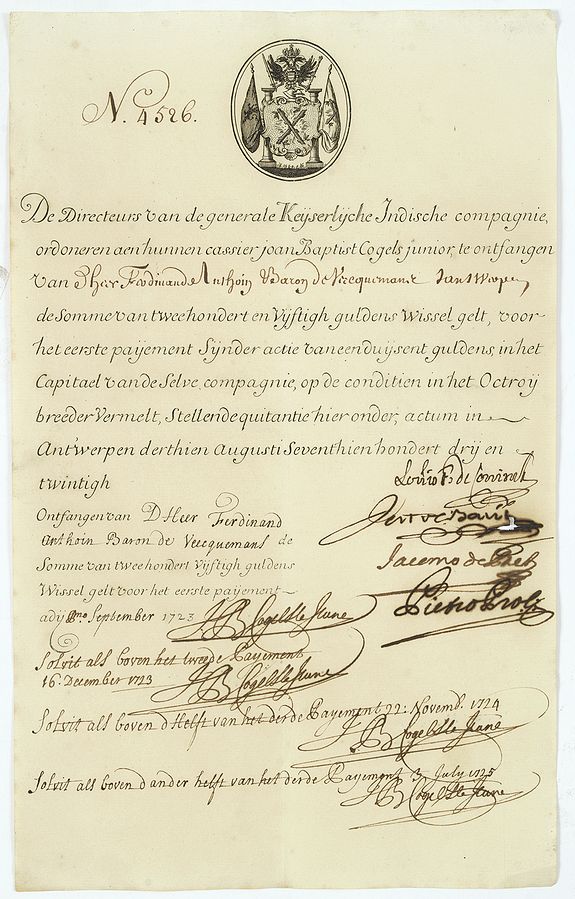 N. 4526.
De Directeurs van de generale Keyserlijche Indische compagnie,
ordoneren aen hunnen cassier joan Baptist Cogels junior, te ontfangen
van Dheer Ferdinande Anthoin Baron de Vecquemans t'antwerpen
de Somme van tweehondert en Vijftigh guldens Wissel gelt, voor-
het eerste paijement Sijnder actie van eenduijsent guldens, in het
Capitael van de Selve compagnie, op de conditien in het Octroij
breeder Vermelt, Stellende quitantie hier onder, actum in
Antwerpen derthien Augusti Seventhien hondert drij en
twintigh
Ontfangen van D Heer Ferdinand
Anthoin Baron de Vecquemans de
Somme van tweehondert Vijftigh guldens
Wissel gelt voor het eerste paijement
adij 8mo September 1723
JB Cogels le Jeune
Jacomo de Pret
Pietro Proli
Solvit als boven het tweede Payement
16. December 1723 JB Cogels le Jeune
Solvit als boven d Helft van het derde Payement 22. Novemb. 1724
JB Cogels le Jeune
Solvit als boven d'ander helft van het derde Payement 3 July 1725
JB Cogels le Jeune